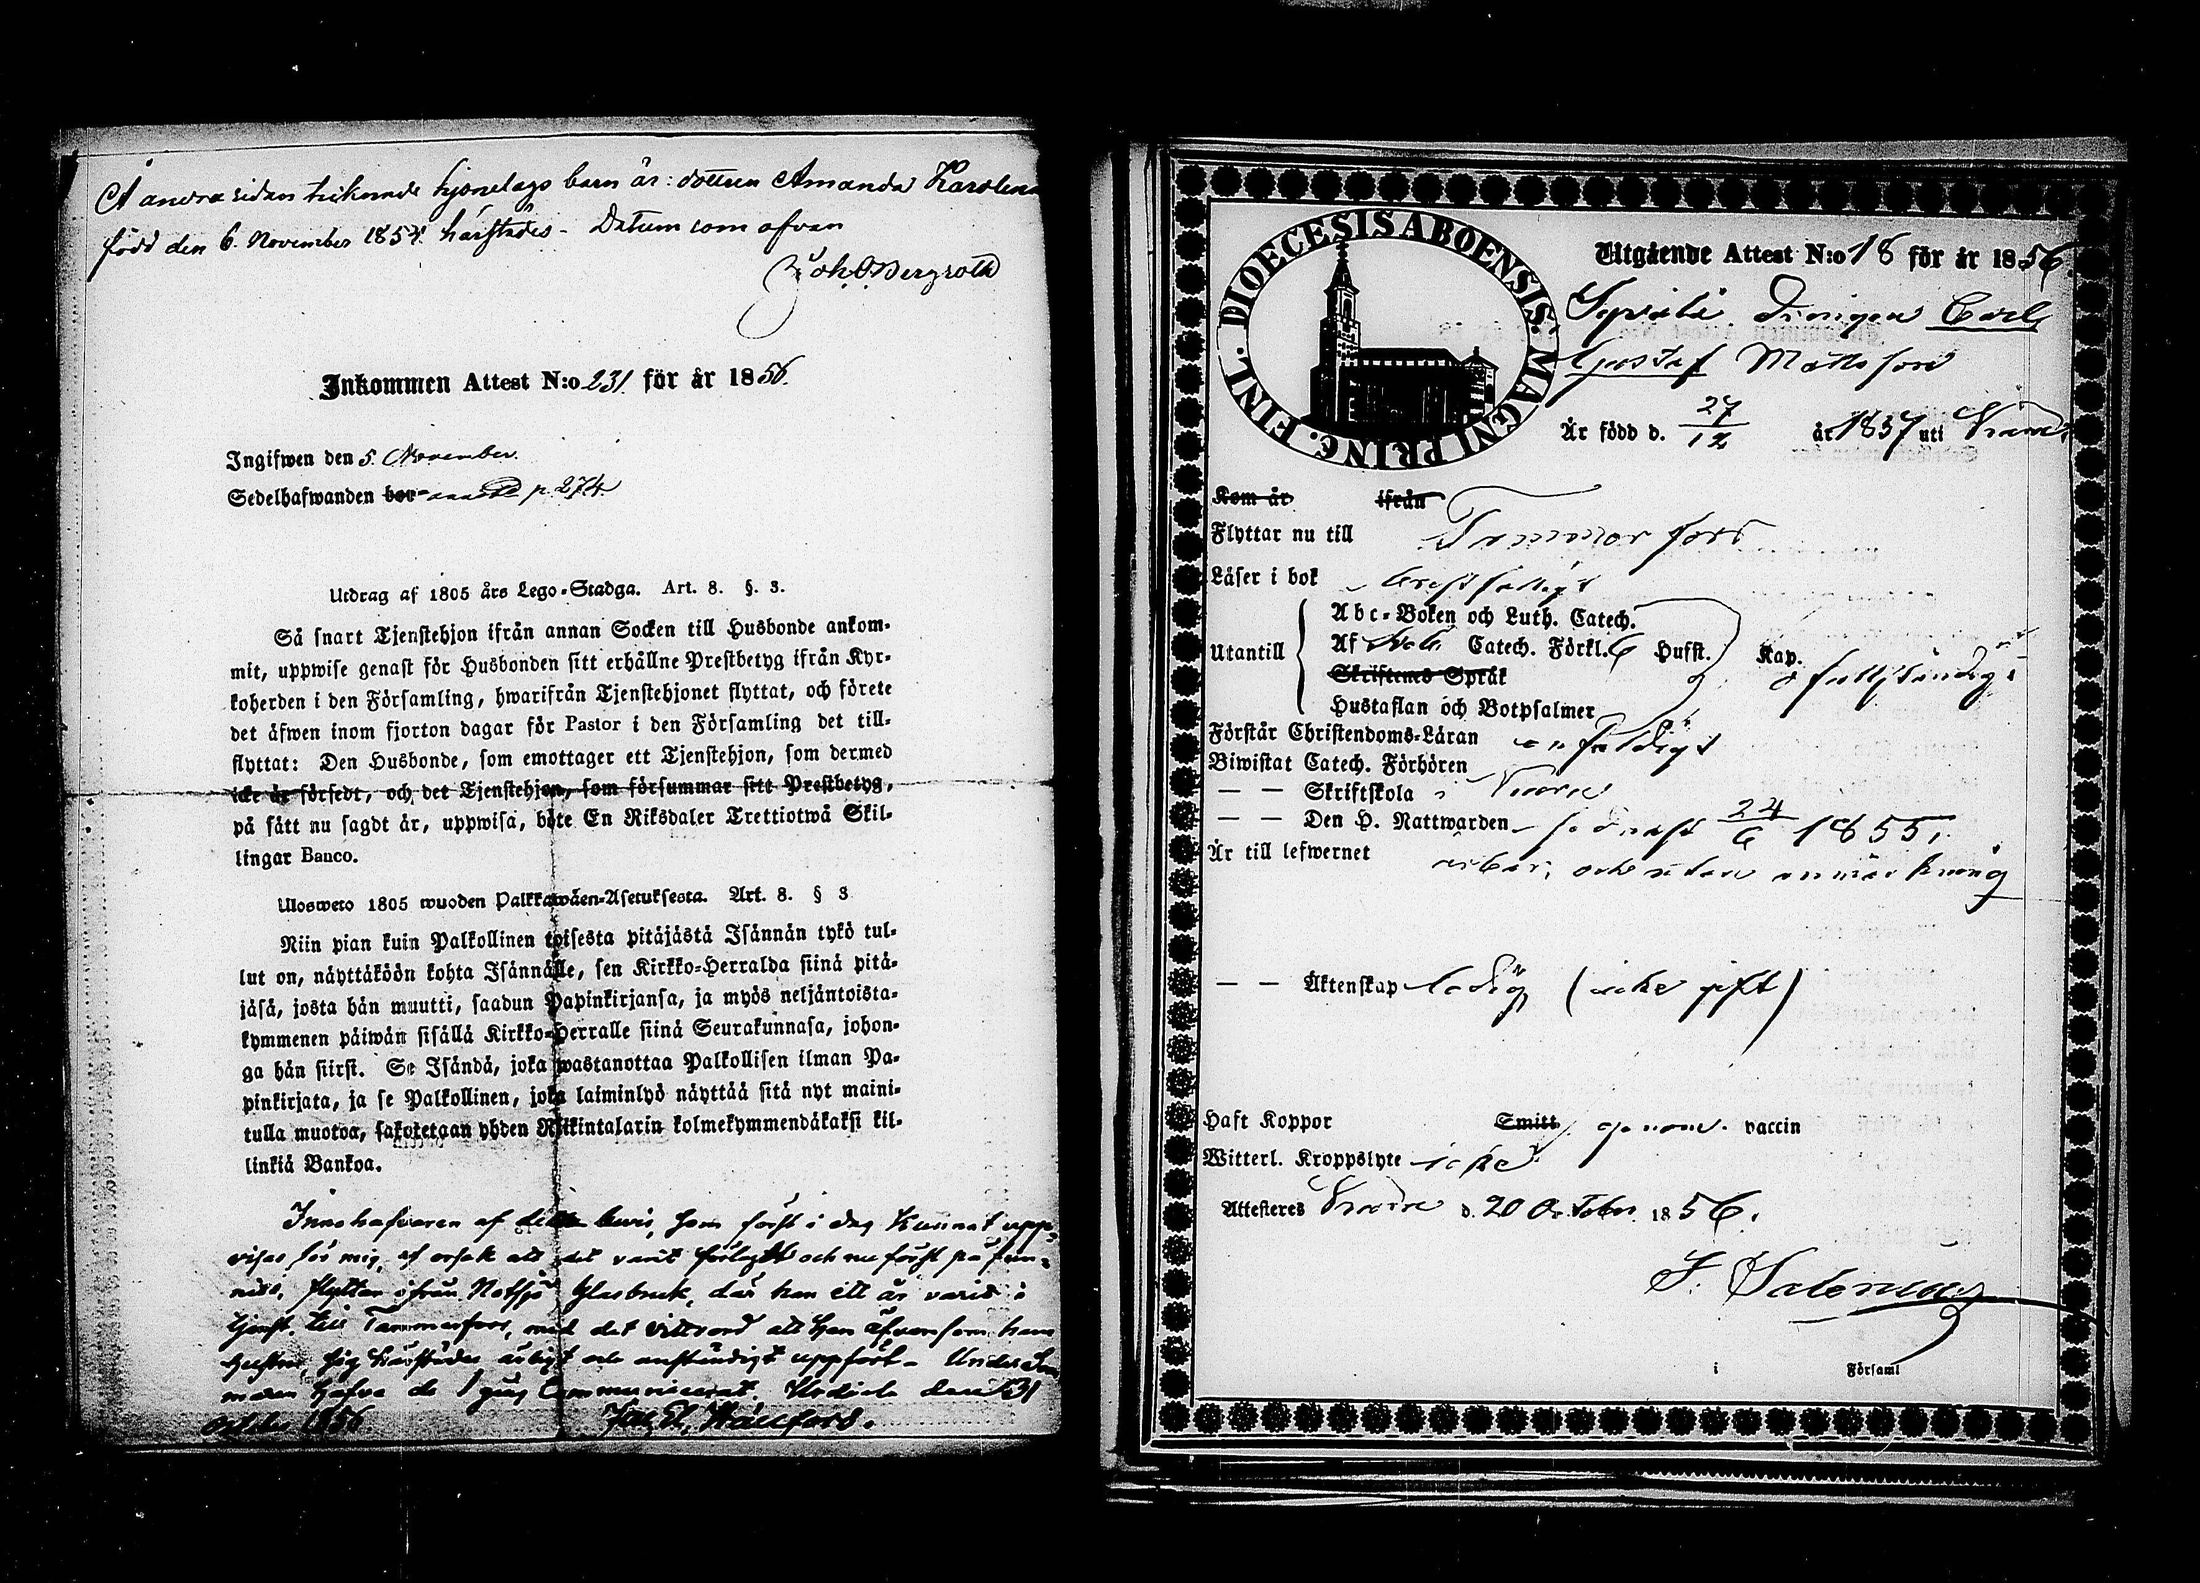 Å andra sidan tecknade hjonelags barn är: dottren Amanda Karolina
född den 6. November 1854. härstädes - Datum som ofvan
Joh. O. Bergroth
Inkommen Attest N:o 231 för år 1856.
Ingifwen den 5. November.
Sedelhafwanden bor p. 274.
Utdrag af 1805 års Lego-Stadga. Art. 8. §. 3.
Så snart Tjenstehjon ifrån annan Socken till Husbonde ankom-
mit, uppwise genast för Husbonden sitt erhållne Prestbetyg ifrån Kyr-
koherden i den Församling, hwarifrån Tjenstehjonet flyttat, och förete
det äfwen inom fjorton dagar för Pastor i den Församling det till-
flyttat: Den Husbonde, som emottager ett Tjenstehjon, som dermed
icke är försedt, och det Tjenstehjon, som försummar sitt Prestbetyg,
på sätt nu sagdt är, uppwisa, böte En Riksdaler Trettiotwå Skil-
lingar Banco.
Ulosweto 1805 wuoden Palkkawäen-Asetuksesta. Art. 8. § 3
Niin pian kuin Palkollinen toisesta pitäjästä Isännän tykö tul-
lut on, näyttäköön kohta Isännälle, sen Kirkko-Herralda siinä pitä-
jäsä, josta hän muutti, saadun Papinkirjansa, ja myös neljäntoista-
kymmenen päiwän sisällä Kirkko-Herralle siinä Seurakunnasa, johon-
ga hän siirsi. Se Isändä, joka wastanottaa Palkollisen ilman Pa-
pinkirjata, ja se Palkollinen, joka laiminlyö näyttää sitä nyt maini-
tulla muotoa, sakotetaan yhden Riikintalarin kolmekymmendäkaksi kil-
linkiä Bankoa.
Innehafvaren af detta bevis, som först i dag kunnat upp-
visas för mig, af orsak att det varit förlagdt och nu först på fun-
nits, flyttar ifrån Notsjö Glasbruk, där han ett år varit i
tjenst, till Tammerfors, med det vittsord att han äfvensom hans
hustru sig härstädes ärligt och anständigt uppfört - Under Som
maren hafva de 1 gång Communicerat. Urdiala den 31
October 1856.
DIOECESIS ABOENSIS. MAGNI PRINC. FINL.
Utgående Attest N:o 18 för år 1856.
Carl
Gustaf Mattsson
Är född d. 27/12 år 1837 uti
Kom år ifrån
Flyttar nu till Tammerfors
Läser i bok
Utantill
Abc-Boken och Luth. Catech.
Af Catech. Förkl. Husst. Kap.
Skriftenes Språk
Hustaflan och Botpsalmer
Förstår Christendoms-Läran enfaldigt
Biwistat Catech. Förhören
— — Skriftskola i
— — Den H. Nattwarden sednast 24/6 1855.
Är till lefwernet ärbar, och utan anmärkning
— — Äktenskap ledig (icke gift)
Haft Koppor Smitt genom vaccin
Witterl. Kroppslyte icke
Attesteres d. 20 October 1856.
i Församl